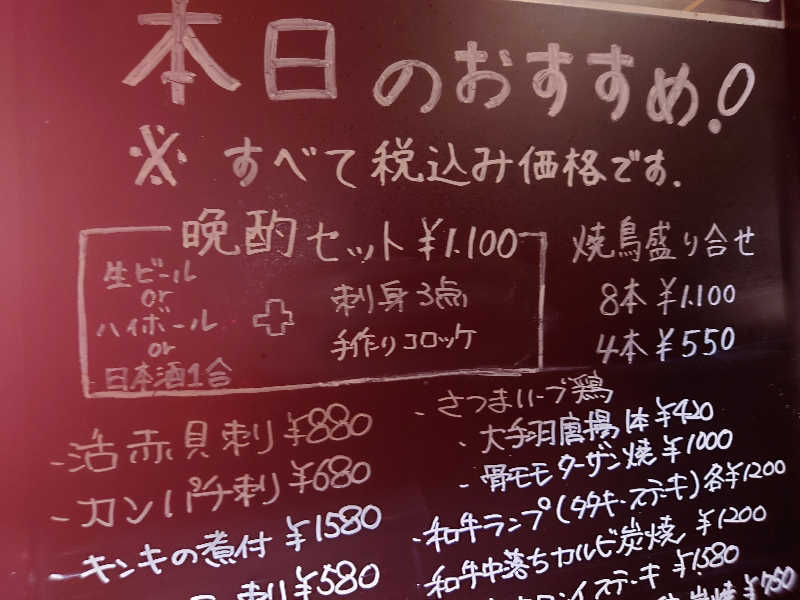 本日のおすすめ!
※ すべて税込み価格です.
晩酌セット ¥1.100
生ビール
or
ハイボール
or
日本酒1合
+
刺身3点
手作りコロッケ
焼鳥盛り合せ
8本 ¥1.100
4本 ¥550
- 活赤貝刺 ¥880
- カンパチ刺 ¥680
- キンキの煮付 ¥1580
刺 ¥580
- さつまハーブ鶏
- 大手羽唐揚1本 ¥420
- 骨モモターザン焼 ¥1000
- 和牛ランプ(タタキ・ステーキ)各¥1200
- 和牛中落ちカルビ炭焼 ¥1200
ステーキ ¥1580
炭焼 ¥750